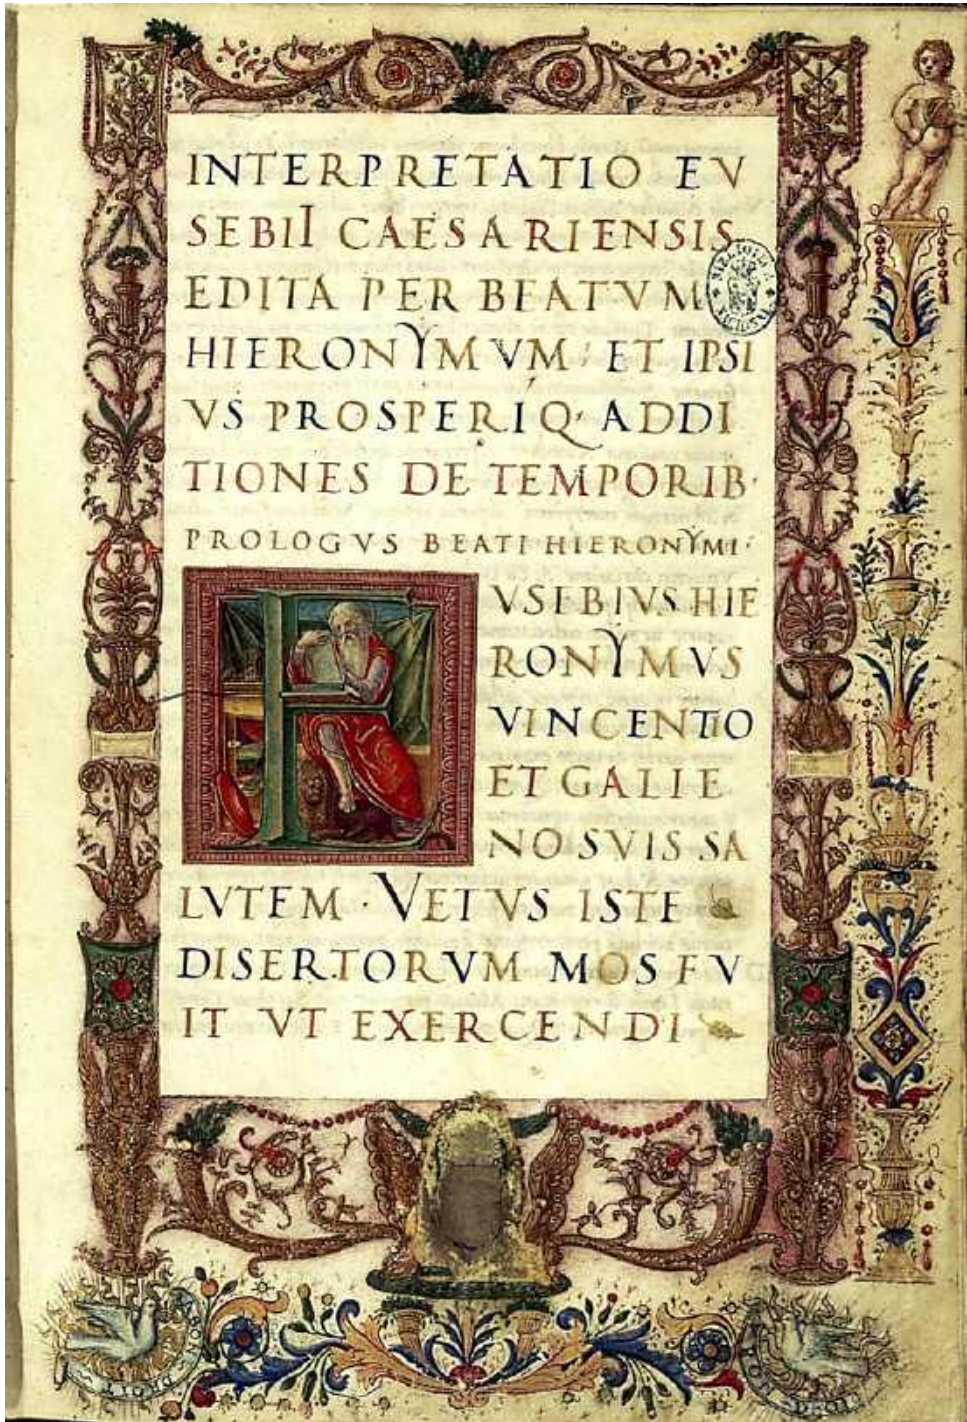 INTERPRETATIO EV
SEBII CAESARIENSIS
EDITA PER BEATVM
HIERONYMVM · ET IPSI
VS PROSPERIQ· ADDI
TIONES DE TEMPORIB·
PROLOGVS BEATI HIERONYMI·
E VSEBIVS HIE
RONYMVS
VINCENTIO
ET GALIE
NO SVIS SA
LVTEM · VETVS ISTE
DISERTORVM MOS FV
IT VT EXERCENDI